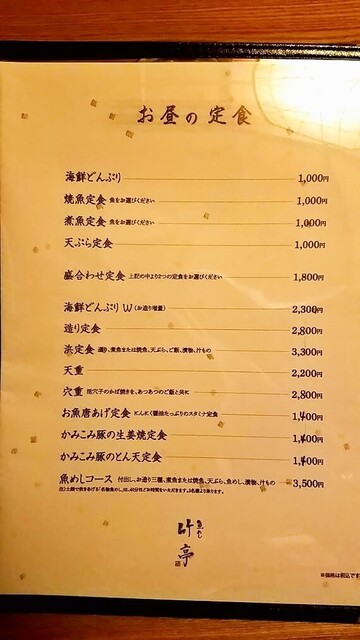 お昼の定食
海鮮どんぶり 1,000円
焼魚定食 魚をお選びください 1,000円
煮魚定食 魚をお選びください 1,000円
天ぷら定食 1,000円
盛合わせ定食 上記の中より2つの定食をお選びください 1,800円
海鮮どんぶり W (お造り増量) 2,300円
造り定食 2,800円
浜定食 造り、煮魚または焼魚、天ぷら、ご飯、漬物、汁もの 3,300円
天重 2,200円
穴重 活穴子のかば焼きを、あつあつのご飯と共に 2,800円
お魚唐あげ定食 にんにく醤油たっぷりのスタミナ定食 1,400円
かみこみ豚の生姜焼定食 1,400円
かみこみ豚のとん天定食 1,400円
魚めしコース 付出し、お造り三種、煮魚または焼魚、天ぷら、魚めし、漬物、汁もの 3,500円
竹亭
※価格は税込です